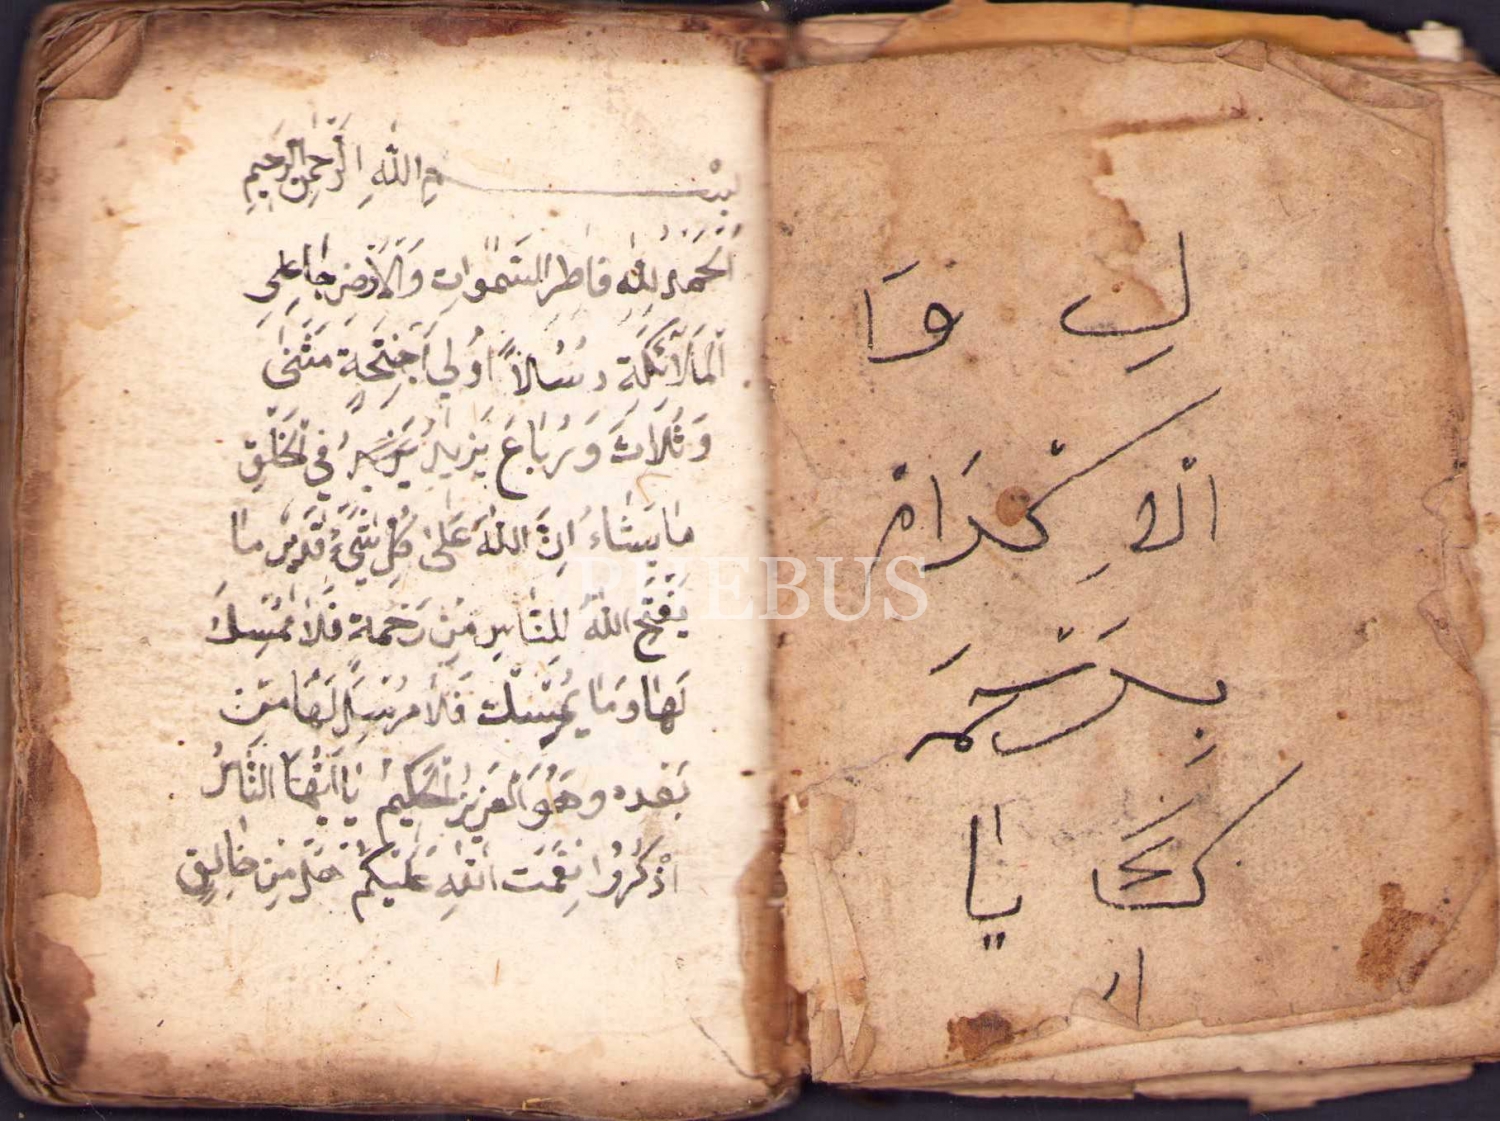 لِ وَا
الاِ كْرَامْ
بِرَحْمَ
يَا
ار
بِسْــــمِ اللهِ الرَّحْمٰنِ الرَّحِيمِ
اَلْحَمْدُ لِلّٰهِ فَاطِرِ السَّمٰوَاتِ وَالْاَرْضِ جَاعِلِ
الْمَلَآئِكَةِ رُسُلاً اُولِي اَجْنِحَةٍ مَثْنٰى
وَثَلَاثَ وَرُبَاعَ يَزِيدُ فِي الْخَلْقِ
مَا يَشَاءُ اِنَّ اللهَ عَلٰى كُلِّ شَيْءٍ قَدِيرٌ مَا
يَفْتَحِ اللهُ لِلنَّاسِ مِنْ رَحْمَةٍ فَلَا مُمْسِكَ
لَهَا وَمَا يُمْسِكْ فَلَا مُرْسِلَ لَهَا مِنْ
بَعْدِه وَهُوَ الْعَزِيزُ الْحَكِيمُ يَا اَيُّهَا النَّاسُ
اذْكُرُوا نِعْمَتَ اللهِ عَلَيْكُمْ هَلْ مِنْ خَالِقٍ
PHEBUS